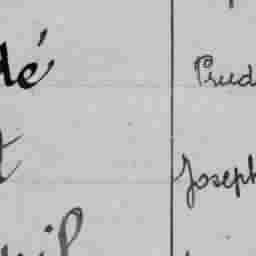 dé Prud
t Joseph
il